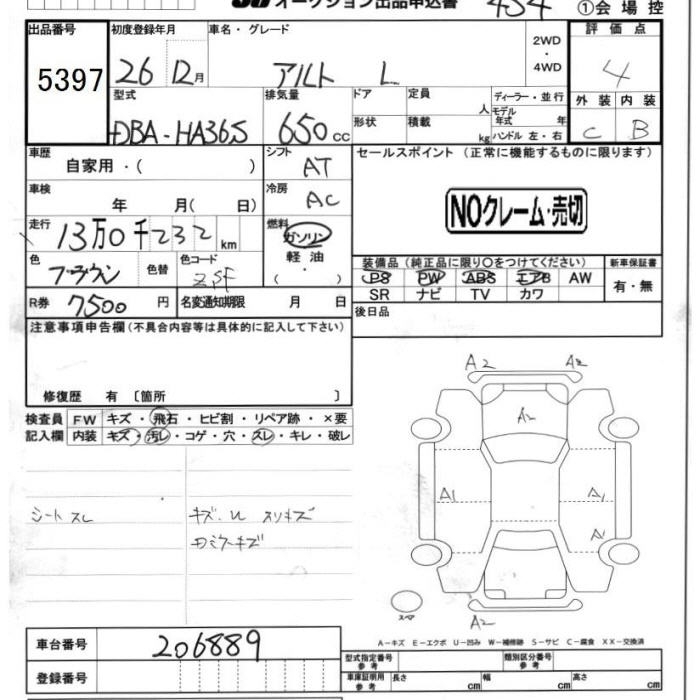 オークション出品申込書 454 ①会場控
出品番号 初度登録年月 車名・グレード 評価点
5397 26 12月 アルト L 2WD・4WD 4
型式 排気量 ドア 定員 人 ディーラー・並行 外装 内装
DBA-HA36S 650cc 形状 積載 kg モデル年式 年 ハンドル 左・右 C B
車歴 自家用・( ) シフト AT セールスポイント (正常に機能するものに限ります)
車検 年 月( 日) 冷房 AC
NOクレーム・売切
走行 13万0千232km 燃料 ガソリン
軽油・( )
色 ブラウン 色替 色コード ZSF
装備品 (純正品に限り○をつけてください) 新車保証書
PS PW ABS エアB AW 有・無
SR ナビ TV カワ
R券 7500円 名変通知期限 月 日
後日品
注意事項申告欄(不具合内容等は具体的に記入して下さい)
修復歴 有 〔箇所 〕
検査員 FW キズ・飛石・ヒビ割・リペア跡・×要
記入欄 内装 キズ・汚レ・コゲ・穴・スレ・キレ・破レ
シート スレ
キズ.U スリキズ
Fミラーキズ
A2 A2
A2
A1 A1
A1
スペア
A2
A-キズ E-エクボ U-凹み W-補修跡 S-サビ C-腐食 XX-交換済
車台番号 206889
登録番号
型式指定番号 参考 類別区分番号 参考
車庫証明用 参考 長さ cm 幅 cm 高さ cm